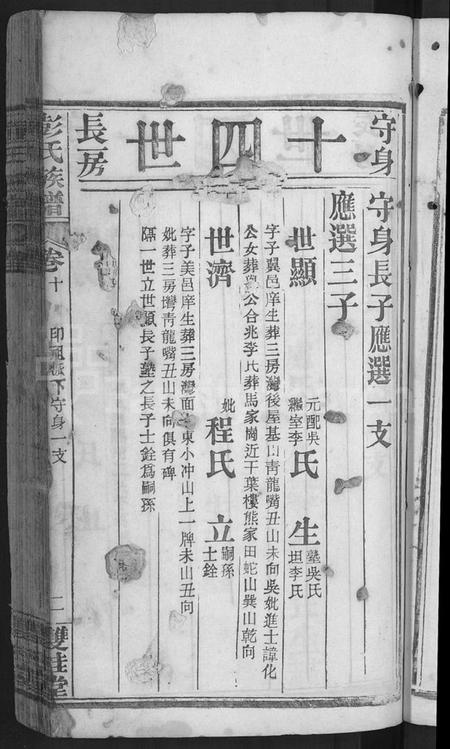 守身
十四世
長房
守身長子應選一支
應選三子
世顯
元配吳
繼室李
氏
生
塾吳氏
坦李氏
字子翼邑庠生葬三房灣後屋基山青龍嘴丑山未向吳妣進士諱化
公女葬公合兆李氏葬馬家崗近干葉樓熊家田蛇山巽山乾向
世濟
妣
程氏
立
嗣孫
士銓
字子美邑庠生葬三房灣面東小冲山上一牌未山丑向
妣葬三房灣青龍嘴丑山未向俱有碑
隔一世立世顯長子塾之長子士銓爲嗣孫
彭氏族譜
卷十
下守身一支
二
雙桂堂